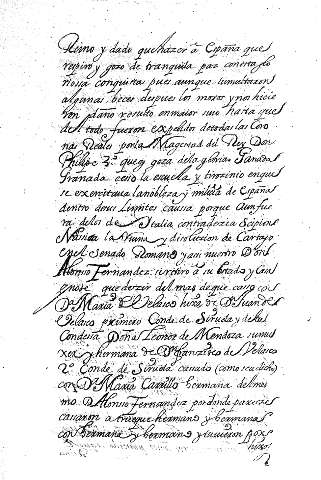 Reino y dado que hazer à España que
respiro y gozo de tranquila paz con esta glo
riosa conquista pues aunque lebantaron
algunas beces despues los moros y nos hicie
ron daño resulto en maior suio hasta que
del todo fueron expelidos de todas las Coro
nas Reales por la Magestad del Rey Don
Philipe 3º que goza de la gloria Ganada
Granada ceso la escuela y tirocinio en que
se exercitava la nobleza y milicia de España
dentro de sus limites causa porque aun fu
era de los de Italia contradezia Scipion
Nasica la Ruina y disolucion de Cartago
en el Senado Romano y asi nuestro Don
Alonso Fernandez se retiro à su estado y Casa
que dezir del mas de que caso con
Dª Maria de Velasco hija de Dº Juan de
Velasco primero Conde de Siruela y de la
Condesa Doña Leonor de Mendoza su mu
xer y hermana de Dº Francisco de Velasco
2º Conde de Siruela casado (como se a dicho)
con Dª Maria Carrillo hermana del mes
mo D. Alonso Fernandez por donde parece
casaron a trueque hermano y hermana
con hermana y hermano y tuvieron por
hijos